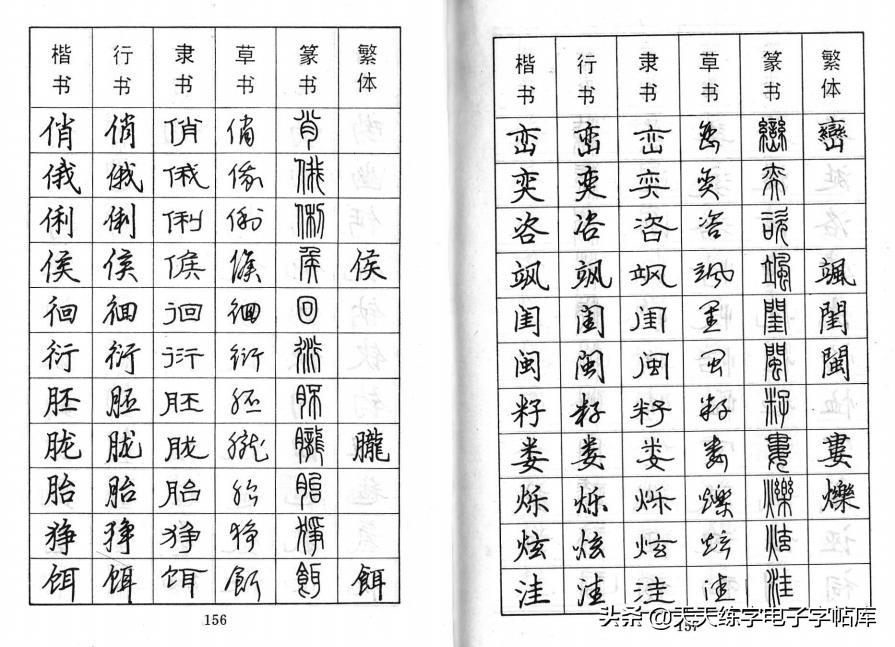 楷书 行书 隶书 草书 篆书 繁体
俏 俏 俏 俏 俏
俄 俄 俄 俄 俄
俐 俐 俐 俐 俐
侯 侯 侯 侯 侯 侯
徊 徊 徊 徊 回
衍 衍 衍 衍 衍
胚 胚 胚 胚 胚
胧 胧 胧 朧 朧 朧
胎 胎 胎 胎 胎
狰 狰 狰 狰 狰
饵 饵 饵 餌 餌 餌
156
楷书 行书 隶书 草书 篆书 繁体
峦 峦 峦 峦 巒 巒
奕 奕 奕 奕 奕
咨 咨 咨 咨
飒 飒 飒 颯 颯 颯
闺 闺 闺 闺 閨 閨
闽 闽 闽 闽 閩 閩
籽 籽 籽 籽 籽
娄 娄 娄 娄 婁 婁
烁 烁 烁 爍 爍 爍
炫 炫 炫 炫 炫
洼 洼 洼 洼 洼
157
头条 @天天练字电子字帖库